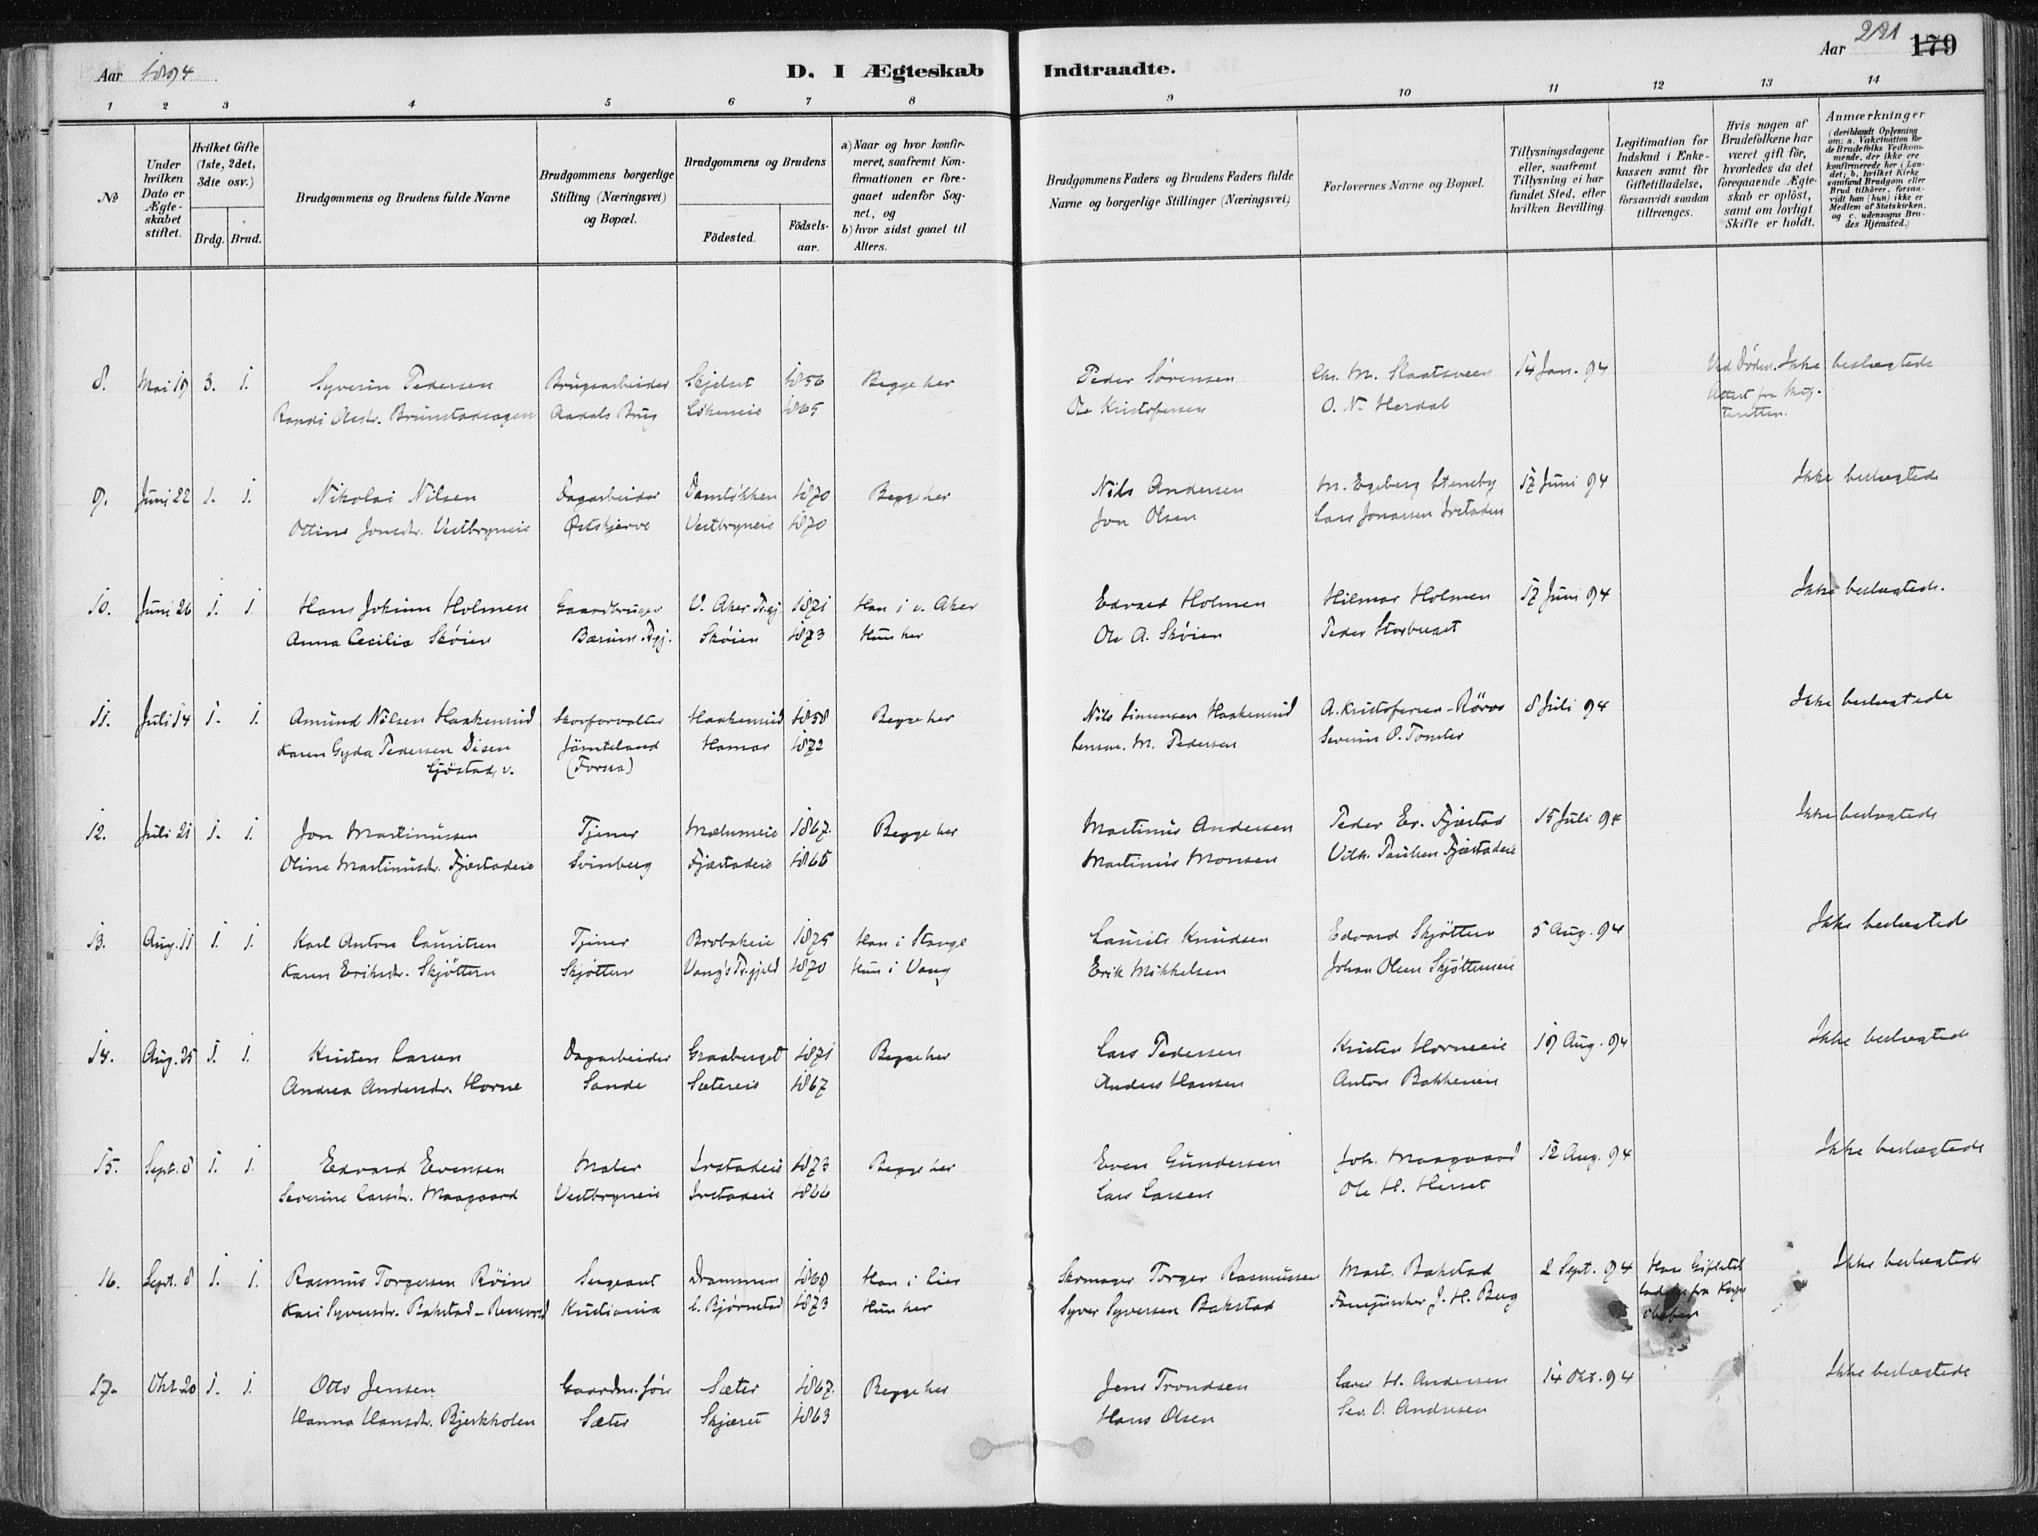 Aar 1894.
D. I Ægteskab Indtraadte.
Aar 221 179
1 2 3 4 5 6 7 8 9 10 11 12 13 14
No
Under hvilken Dato er Ægteskabet stiftet.
Hvilket Gifte (1ste, 2det, 3die osv.)
Brdg. Brud.
Brudgommens og Brudens fulde Navne
Brudgommens borgerlige Stilling (Næringsvei) og Bopæl.
Brudgommens og Brudens
Fødested.
Fødselsaar.
a) Naar og hvor konfirmeret, saafremt Konfirmationen er foregaaet udenfor Sognet, og
b) hvor sidst gaaet til Alters.
Brudgommens Faders og Brudens Faders fulde Navne og borgerlige Stillinger (Næringsvei)
Forlovernes Navne og Bopæl.
Tillysningsdagene eller, saafremt Tillysning ei har fundet Sted, efter hvilken Bevilling.
Legitimation for Indskud i Enkekassen samt for Giftetilladelse, forsaavidt saadan tiltrænges.
Hvis nogen af Brudefolkene har været gift før, hvorledes da det foregaaende Ægteskab er opløst, samt om lovligt Skifte er holdt.
Anmærkninger (deriblandt Oplysning om: a. Vakcination for de Brudefolks Vedkommende, der ikke ere konfirmerede her i Landet; b. hvilket Kirkesamfund Brudgom eller Brud tilhører, forsaavidt han (hun) ikke er Medlem af Statskirken, og c. udensogns Brudes Hjemsted.)
8. Mai 19 3. 1. Syverin Pedersen Brugsarbeider Skjelset 1856 Begge her Peder Sørensen Chr. M. Skaatsveen 14 Jan. 94 Ved Døden. Ikke beslægtede
Randi Olesdr. Brunstadeagen Aadals Brug Løkeneie 1865 Ole Kristofersen O. N. Herdal Attest fra Skif-
teretten.
9. Juni 22 1. 1. Nikolai Nilsen Dagarbeider Damløkken 1870 Begge her Nils Andersen M. Egeberg Stensby 17 Juni 94 Ikke beslægtede
Oline Jonsdr. Vestbryneie Østskjerve Vestbryneie 1870 Jon Olsen Lars Jonassen Irstadeie
10. Juni 26 1. 1. Hans Jokum Holmen Gaardbruger V. Aker Prgj 1871 Han i v. Aker Edvard Holmen Hilmar Holmen 17 Juni 94 Ikke beslægtede.
Anna Cecilia Skøien Bærum Prgj. Skøien 1873 Hun her Ole A. Skøien Peder Storbuset
11. Juli 14 1. 1. Amund Nilsen Haakensrud Skovforvalter Haakensrud 1858 Begge her Nils Simensen Haakensrud A. Kristofersen-Røros 8 Juli 94 Ikke beslægtede
Karen Gyda Pedersen Disen Jämteland Hamar 1872 Lensm. M. Pedersen Severin O. Tomter
Gjøstad, v. (Forssa)
12. Juli 21 1. 1. Jon Martinussen Tjener Mælumeie 1867. Begge her Martinus Andersen Peder Er. Fjæstad 15 Juli 94 Ikke beslægtede
Oline Martinusdr. Fjæstadeie Svinberg Fjæstadeie 1865 Martinus Monsen Vilh. Paulsen Fjæstadeie
13. Aug. 11 1. 1. Karl Anton Lauritsen Tjener Brobakeie 1875 Han i Stange Laurits Knudsen Edvard Skjøtten 5 Aug. 94 Ikke beslægtede
Karen Eriksdr. Skjøtten Skjøtten Vang's Prgjeld 1870 Hun i Vang Erik Mikkelsen Johan Olsen Skjøtteneie
14. Aug. 25 1. 1. Kristen Larsen Dagarbeider Graaberget 1871 Begge her Lars Pedersen Kristen Horneeie 19 Aug. 94 Ikke beslægtede
Andrea Andersdr. Horne Sande Sætereie 1867 Anders Hansen Anton Bakkeneie
15. Sept. 8 1. 1. Edvard Evensen Maler Irstadeie 1873 Begge her Even Gundersen Joh. Maagaard 12 Aug. 94 Ikke beslægtede
Severine Larsdr. Maagaard Vestbryneie Irstadeie 1866 Lars Larsen Ole H. Herset
16. Sept. 8 1. 1. Rasmus Torgersen Røine Sergeant Drammen 1868 Han i Lier Skomager Torger Rasmussen Mart. Bakstad 2 Sept. 94 Har Giftetil Ikke beslægtede
Kari Syversdr. Bakstad- Kristiania L. Bjørnstad 1873 Hun her Syver Syversen Bakstad Fanejunker J. H. Berg ladelse fra Komp
chefen
17. Okt. 20 1. 1. Otto Jensen Gaardm. søn Sæter 1867. Begge her Jens Trondsen Lars H. Andersen 14 Okt. 94 Ikke beslægtede
Hanna Hansdr. Bjerkholen Sæter Skjæret 1863 Hans Olsen Sev. O. Andresen